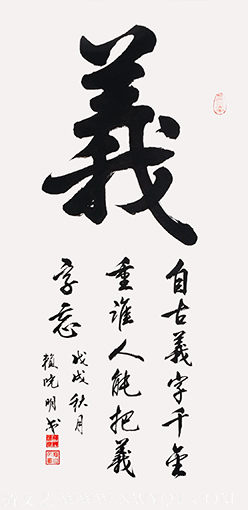 義
自古義字千金
重誰人能把義
字忘
戊戌秋月
賴曉明书